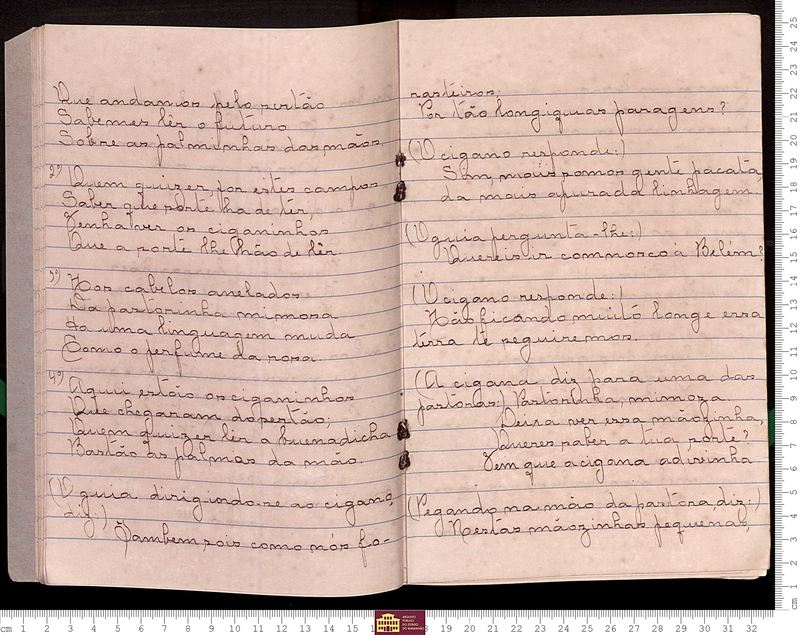 Que andamos pelo sertão
Sabemos lêr o futuro
Sobre as palminhas das mãos.
2º) Quem quizer por estes campos
Saber que sorte ha de têr,
Venha ver os ciganinhos
Que a sorte lhe hão de lêr.
3º) Nos cabelos anelados
Da pastorinha mimosa
Ha uma linguagem muda
Como o perfume da rosa
4º) Aqui estão os ciganinhos
Que chegaram do sertão;
Quem quizer lêr a buenadicha
Bastão as palmas da mão.
(O guia dirigindo-se ao cigano,
diz:)
Tambem sois como nós fo-
rasteiros;
Por tão longiquas paragens?
(O cigano responde:)
Sim, mais somos gente pacata
da mais apurada linhagem.
(O guia pergunta-lhe:)
Quereis ir commosco á Belém?
(O cigano responde:)
Não ficando muitó longe essa
terra té seguiremos.
(A cigana diz para uma das
pastoras:) Pastorinha, mimoza
Deixa ver essa mãozinha,
Queres saber a tua sorte?
Vem que a cigana adivinha
(Pegando na mão da pastora, diz:)
Nestas mãozinhas pequenas,
ARQUIVO
PÚBLICO
DO ESTADO
DO MARANHÃO
cm 1 2 3 4 5 6 7 8 9 10 11 12 13 14 15 18 19 20 21 22 23 24 25 26 27 28 29 30 31 32
cm 1 2 3 4 5 6 7 8 9 10 11 12 13 14 15 16 17 18 19 20 21 22 23 24 25